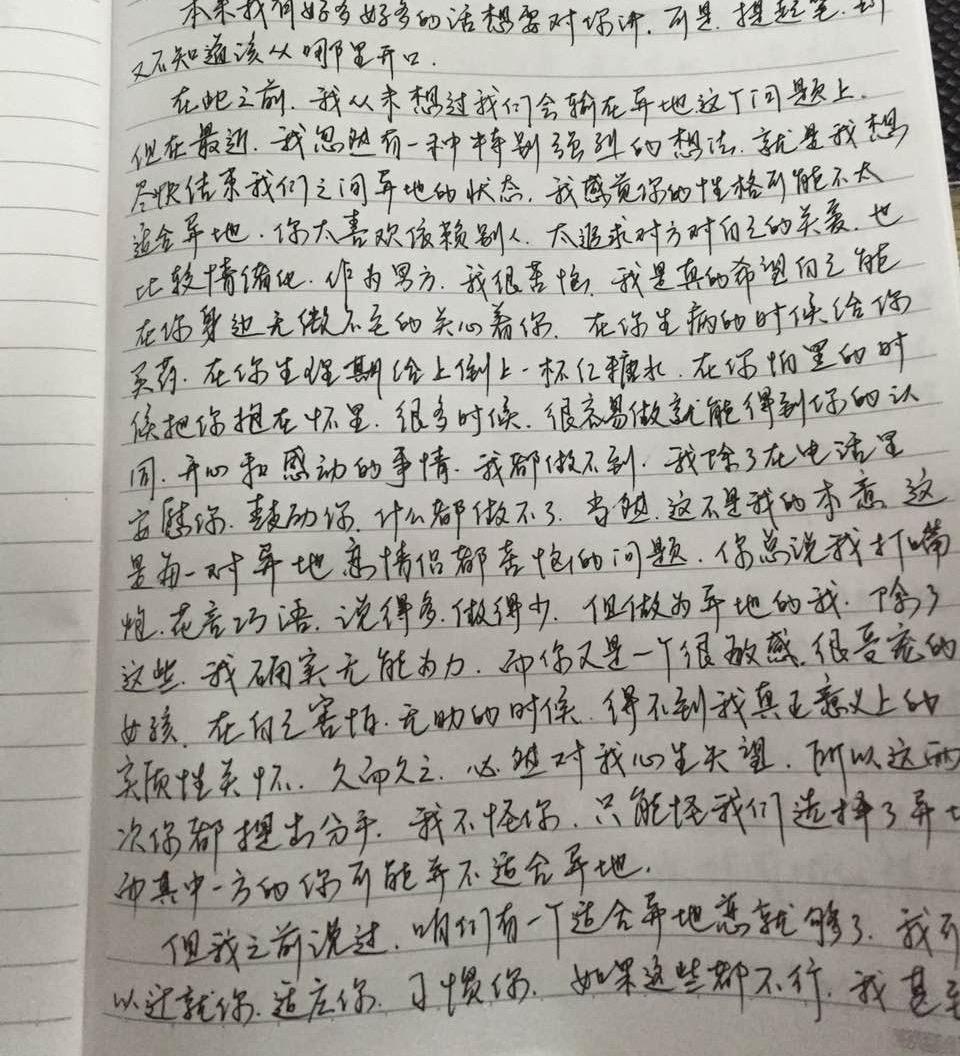 本来我有好多好多的话想要对你讲.可是.提起笔.却
又不知道该从哪里开口.
在此之前.我从未想过我们会输在异地这个问题上.
但在最近.我忽然有一种特别强烈的想法.就是我想
尽快结束我们之间异地的状态.我感觉你的性格可能不太
适合异地.你太喜欢依赖别人.太追求对方对自己的关爱.也
比较情绪化.作为男方.我很苦恼.我是真的希望自己能
在你身边无微不至的关心着你.在你生病的时候给你
买药.在你生理期给上倒上一杯红糖水.在你怕黑的时
候把你抱在怀里.很多时候.很容易做就能得到你的认
同.开心和感动的事情.我都做不到.我除了在电话里
安慰你.鼓励你.什么都做不了.当然.这不是我的本意.这
是每一对异地恋情侣都苦恼的问题.你总说我打嘴
炮.花言巧语.说得多.做得少.但做为异地的我.除了
这些.我确实无能为力.而你又是一个很敏感.很受宠的
女孩.在自己害怕.无助的时候.得不到我真正意义上的
实质性关怀.久而久之.必然对我心生失望.所以这两
次你都提出分手.我不怪你.只能怪我们选择了异地
而其中一方的你可能并不适合异地.
但我之前说过.咱们有一个适合异地恋就够了.我可
以迁就你.适应你.习惯你.如果这些都不行.我甚至